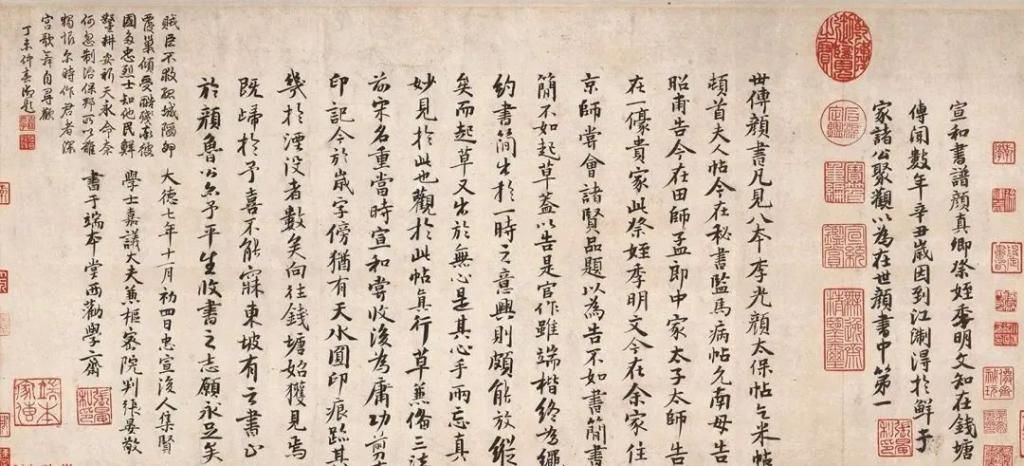 宣和書譜顔真卿祭姪季明文知在錢塘
傳聞數年辛丑歲因到江淛得於鮮于
家諸公聚觀以為在世顔書中第一
世傳顔書凡見八本李光顔太保帖乞米帖
頓首夫人帖今在秘書監馬病帖允南母告
昭甫告今在田師孟郎中家太子太師告
在一豪貴家此祭姪季明文今在余家住
京師嘗會諸賢品題以為告不如書簡書
簡不如起草盖以告是官作雖端楷終為繩
約書簡出於一時之意興則頗能放縱
矣而起草又出於無心是其心手兩忘真
妙見於此也觀於此帖真行草兼備三法
前宋名重當時宣和嘗收後為庸功剪
印記今於歲字傍猶有天水圓印痕跡其
幾於湮没者數矣向往錢塘始獲見焉
既歸於予喜不能寐東坡有云書止
於顔魯公尒予平生收書之志願永足矣
大德七年十月初四日忠宣後人集賢
學士嘉議大夫兼樞密院判張晏敬
書于端本堂西勸學齋
賊臣不救孤城隕卵
覆巢傾受酷殘當彼
國多忠烈士知他民鮮
鑿耕安祈天永命奈
何忽制治保邦可以難
獨恨尒時作君者深
宫歌舞自尋歡
丁未仲春御題